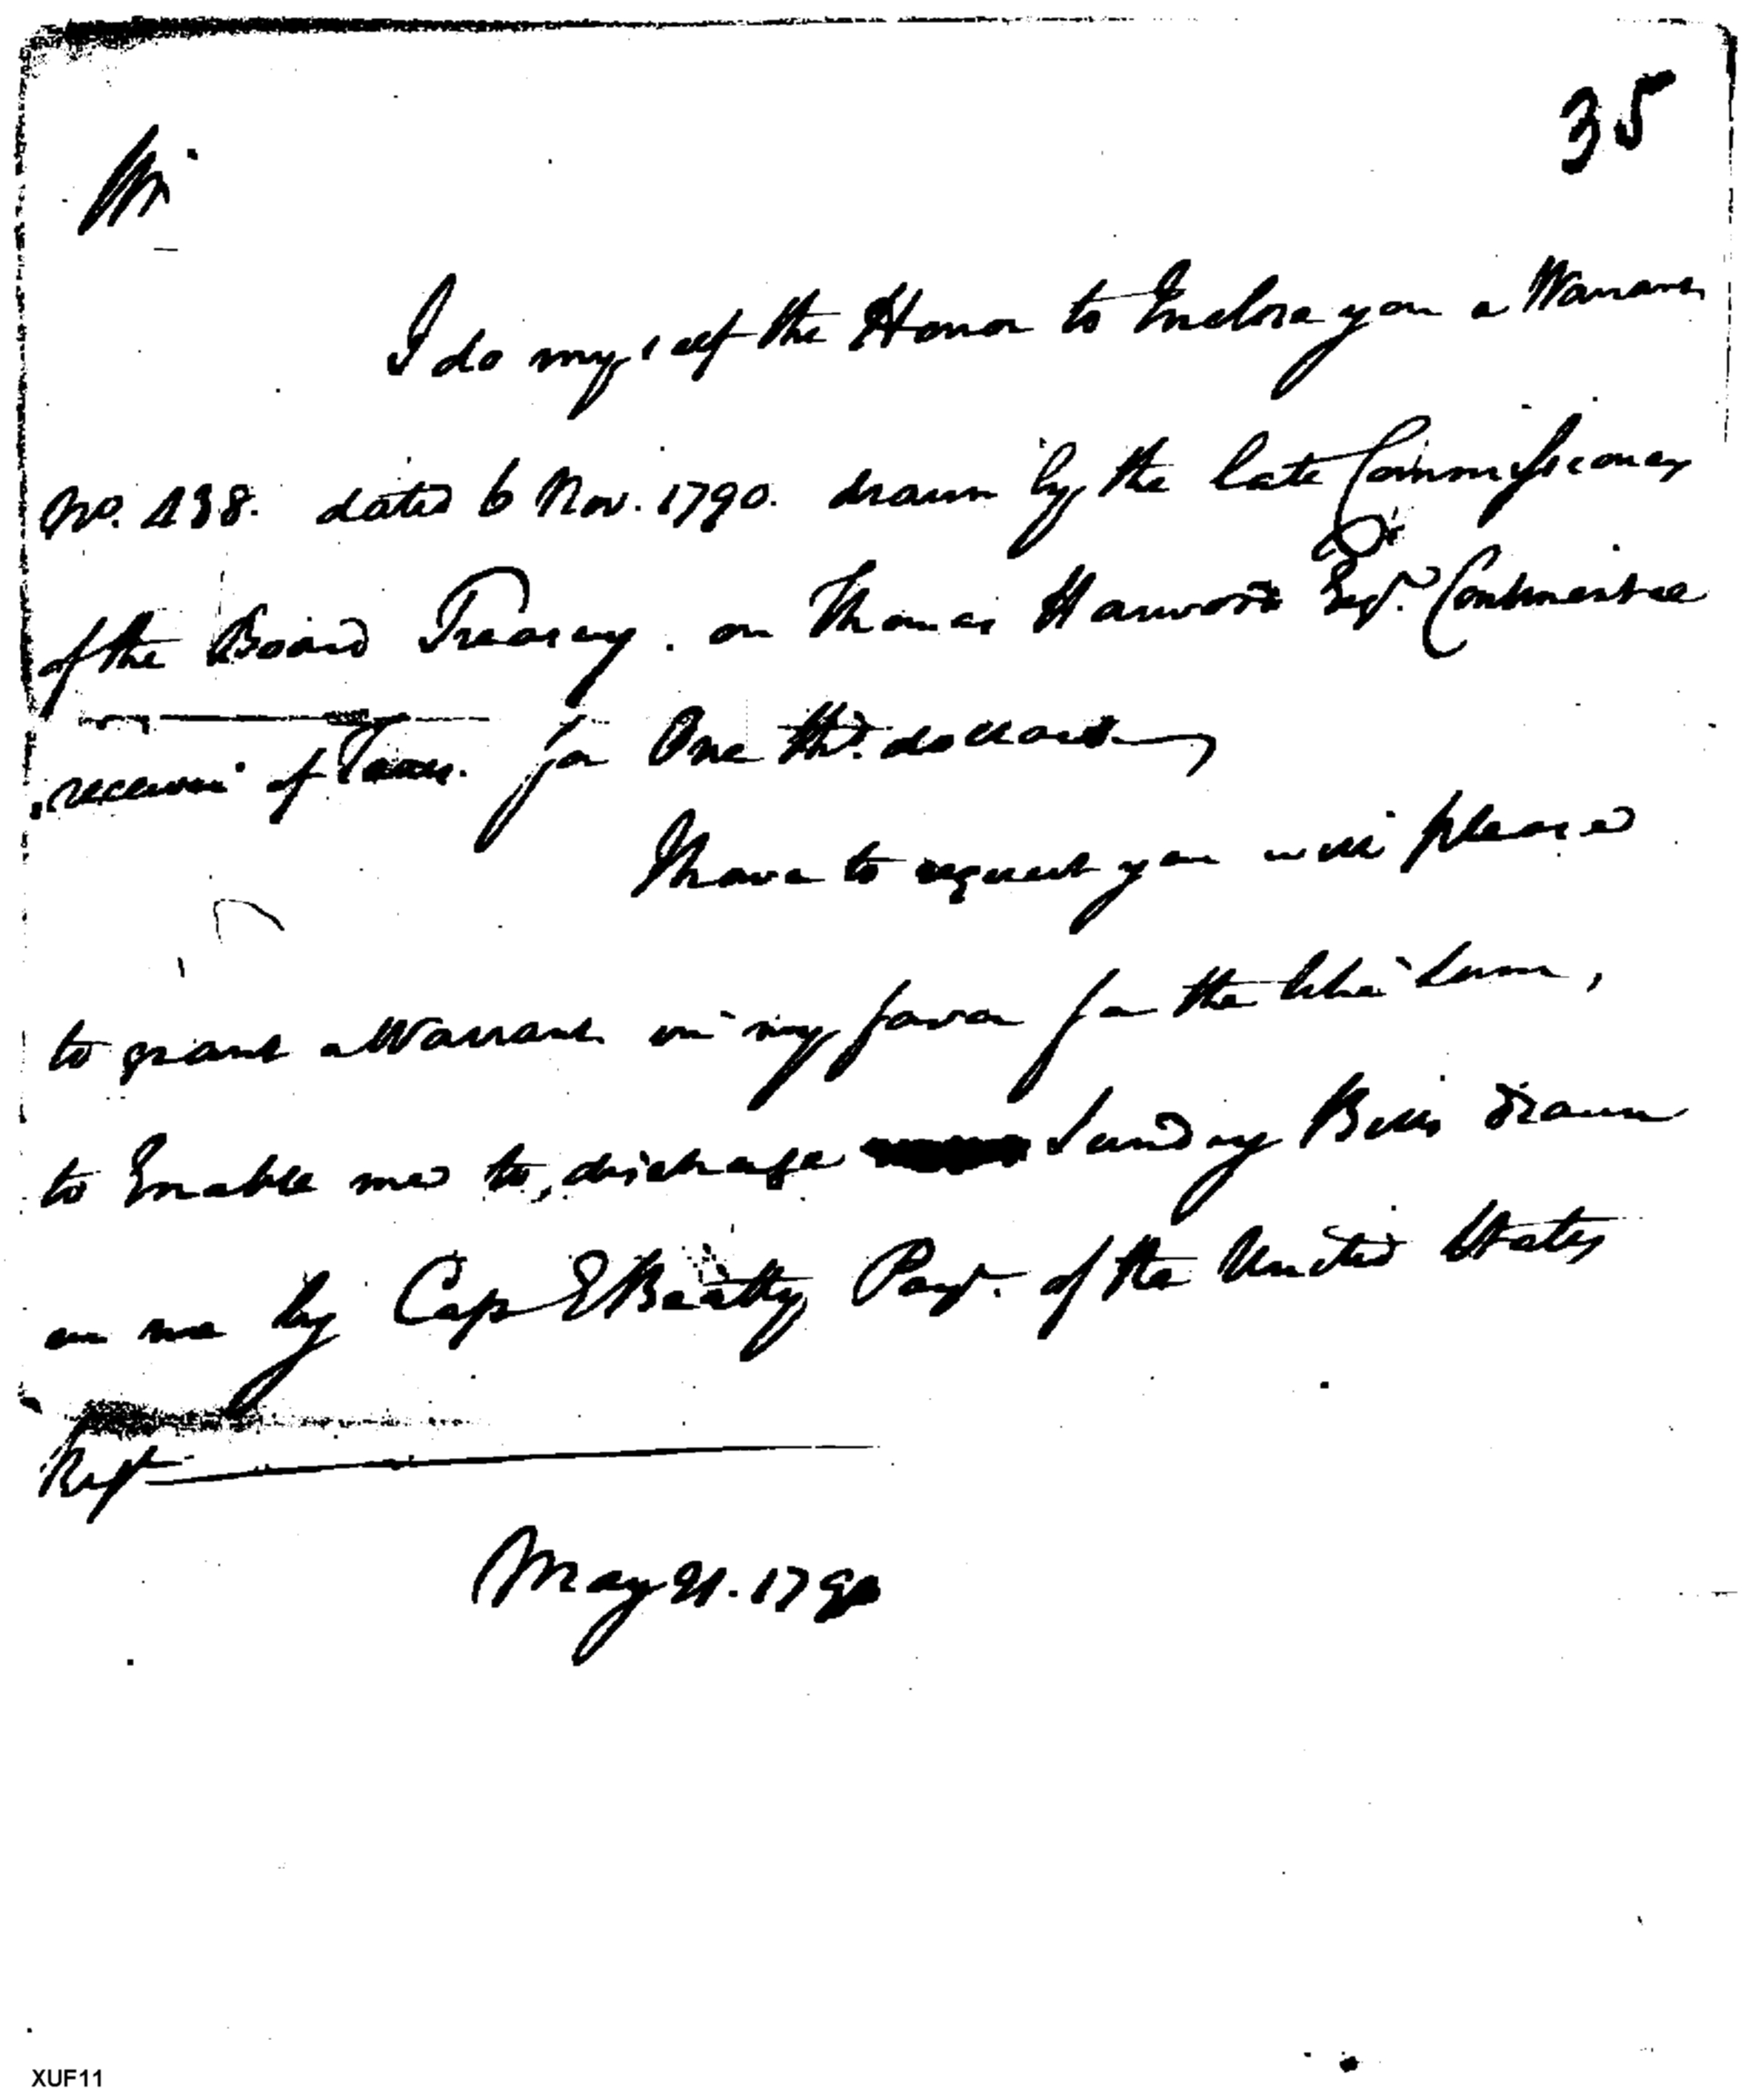 35
Sir
I do myself the Honor to Enclose you a Warrant
No. 438. dated 6 Nov. 1790. drawn by the late Commissioners
of the Board Treasury. on Thomas Harwood Esqr. Continental
receiver of Taxes. for One thd. dollars
I have to request you will please
to grant a Warrant in my favor for the like Sum,
to Enable me to, discharge Sundry Bills drawn
on me by Cap E Beatty Payr. of the United States
Regt
May 21. 1790
XUF11